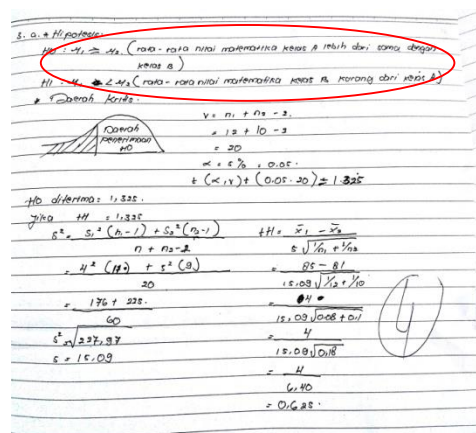 3. a. * Hipotesis:
H0 : μ1 ≥ μ2. (rata-rata nilai matematika kelas A lebih dari sama dengan
kelas B)
H1 : μ1 < μ2 (rata-rata nilai matematika kelas B kurang dari kelas A)
* Daerah Kritis.
Daerah
penerimaan
H0
v = n1 + n2 - 2.
= 12 + 10 - 2
= 20
α = 5% = 0.05.
t (α, v) t (0.05 . 20) ± 1.325
H0 diterima = 1,325.
Jika tH = 1,325
s² = S1² (n1-1) + S2² (n2-1)
n + n2-2
= 4² (11) + 5² (9)
20
= 176 + 225.
60
s² = √227,97
s = 15.09
tH = x̄1 - x̄2
s √1/n1 + 1/n2
= 85 - 81
15.09 √1/12 + 1/10
= 4
15,09 √0.08 + 0.1
= 4
15.09 √0,18
= 4
6,40
= 0.625.
4